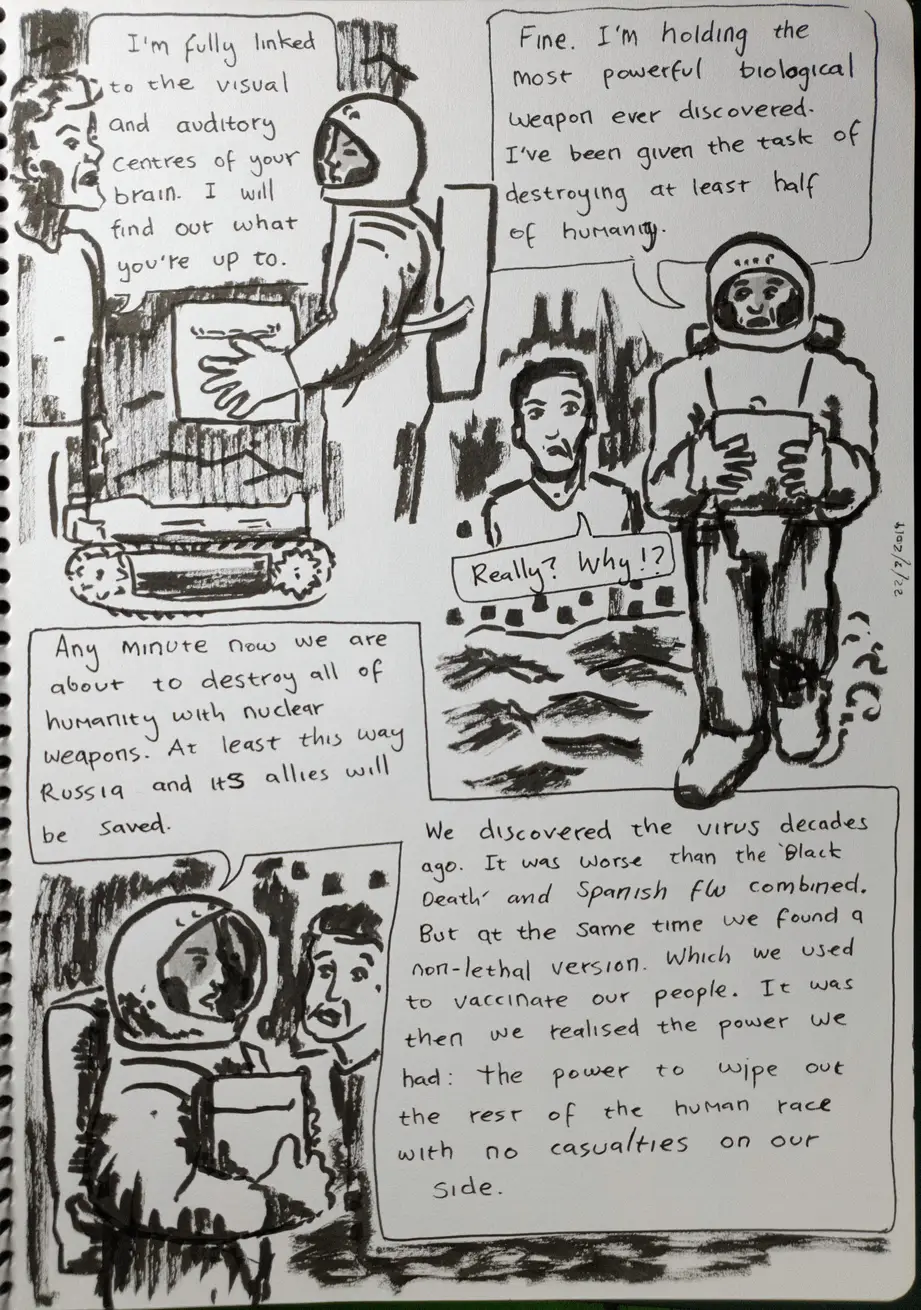 I'm fully linked
to the visual
and auditory
centres of your
brain. I will
find out what
you're up to.
Fine. I'm holding the
most powerful biological
weapon ever discovered.
I've been given the task of
destroying at least half
of humanity.
Really? Why!?
Any minute now we are
about to destroy all of
humanity with nuclear
weapons. At least this way
Russia and its allies will
be saved.
We discovered the virus decades
ago. It was worse than the 'Black
Death' and Spanish flu combined.
But at the same time we found a
non-lethal version. Which we used
to vaccinate our people. It was
then we realised the power we
had: the power to wipe out
the rest of the human race
with no casualties on our
side.